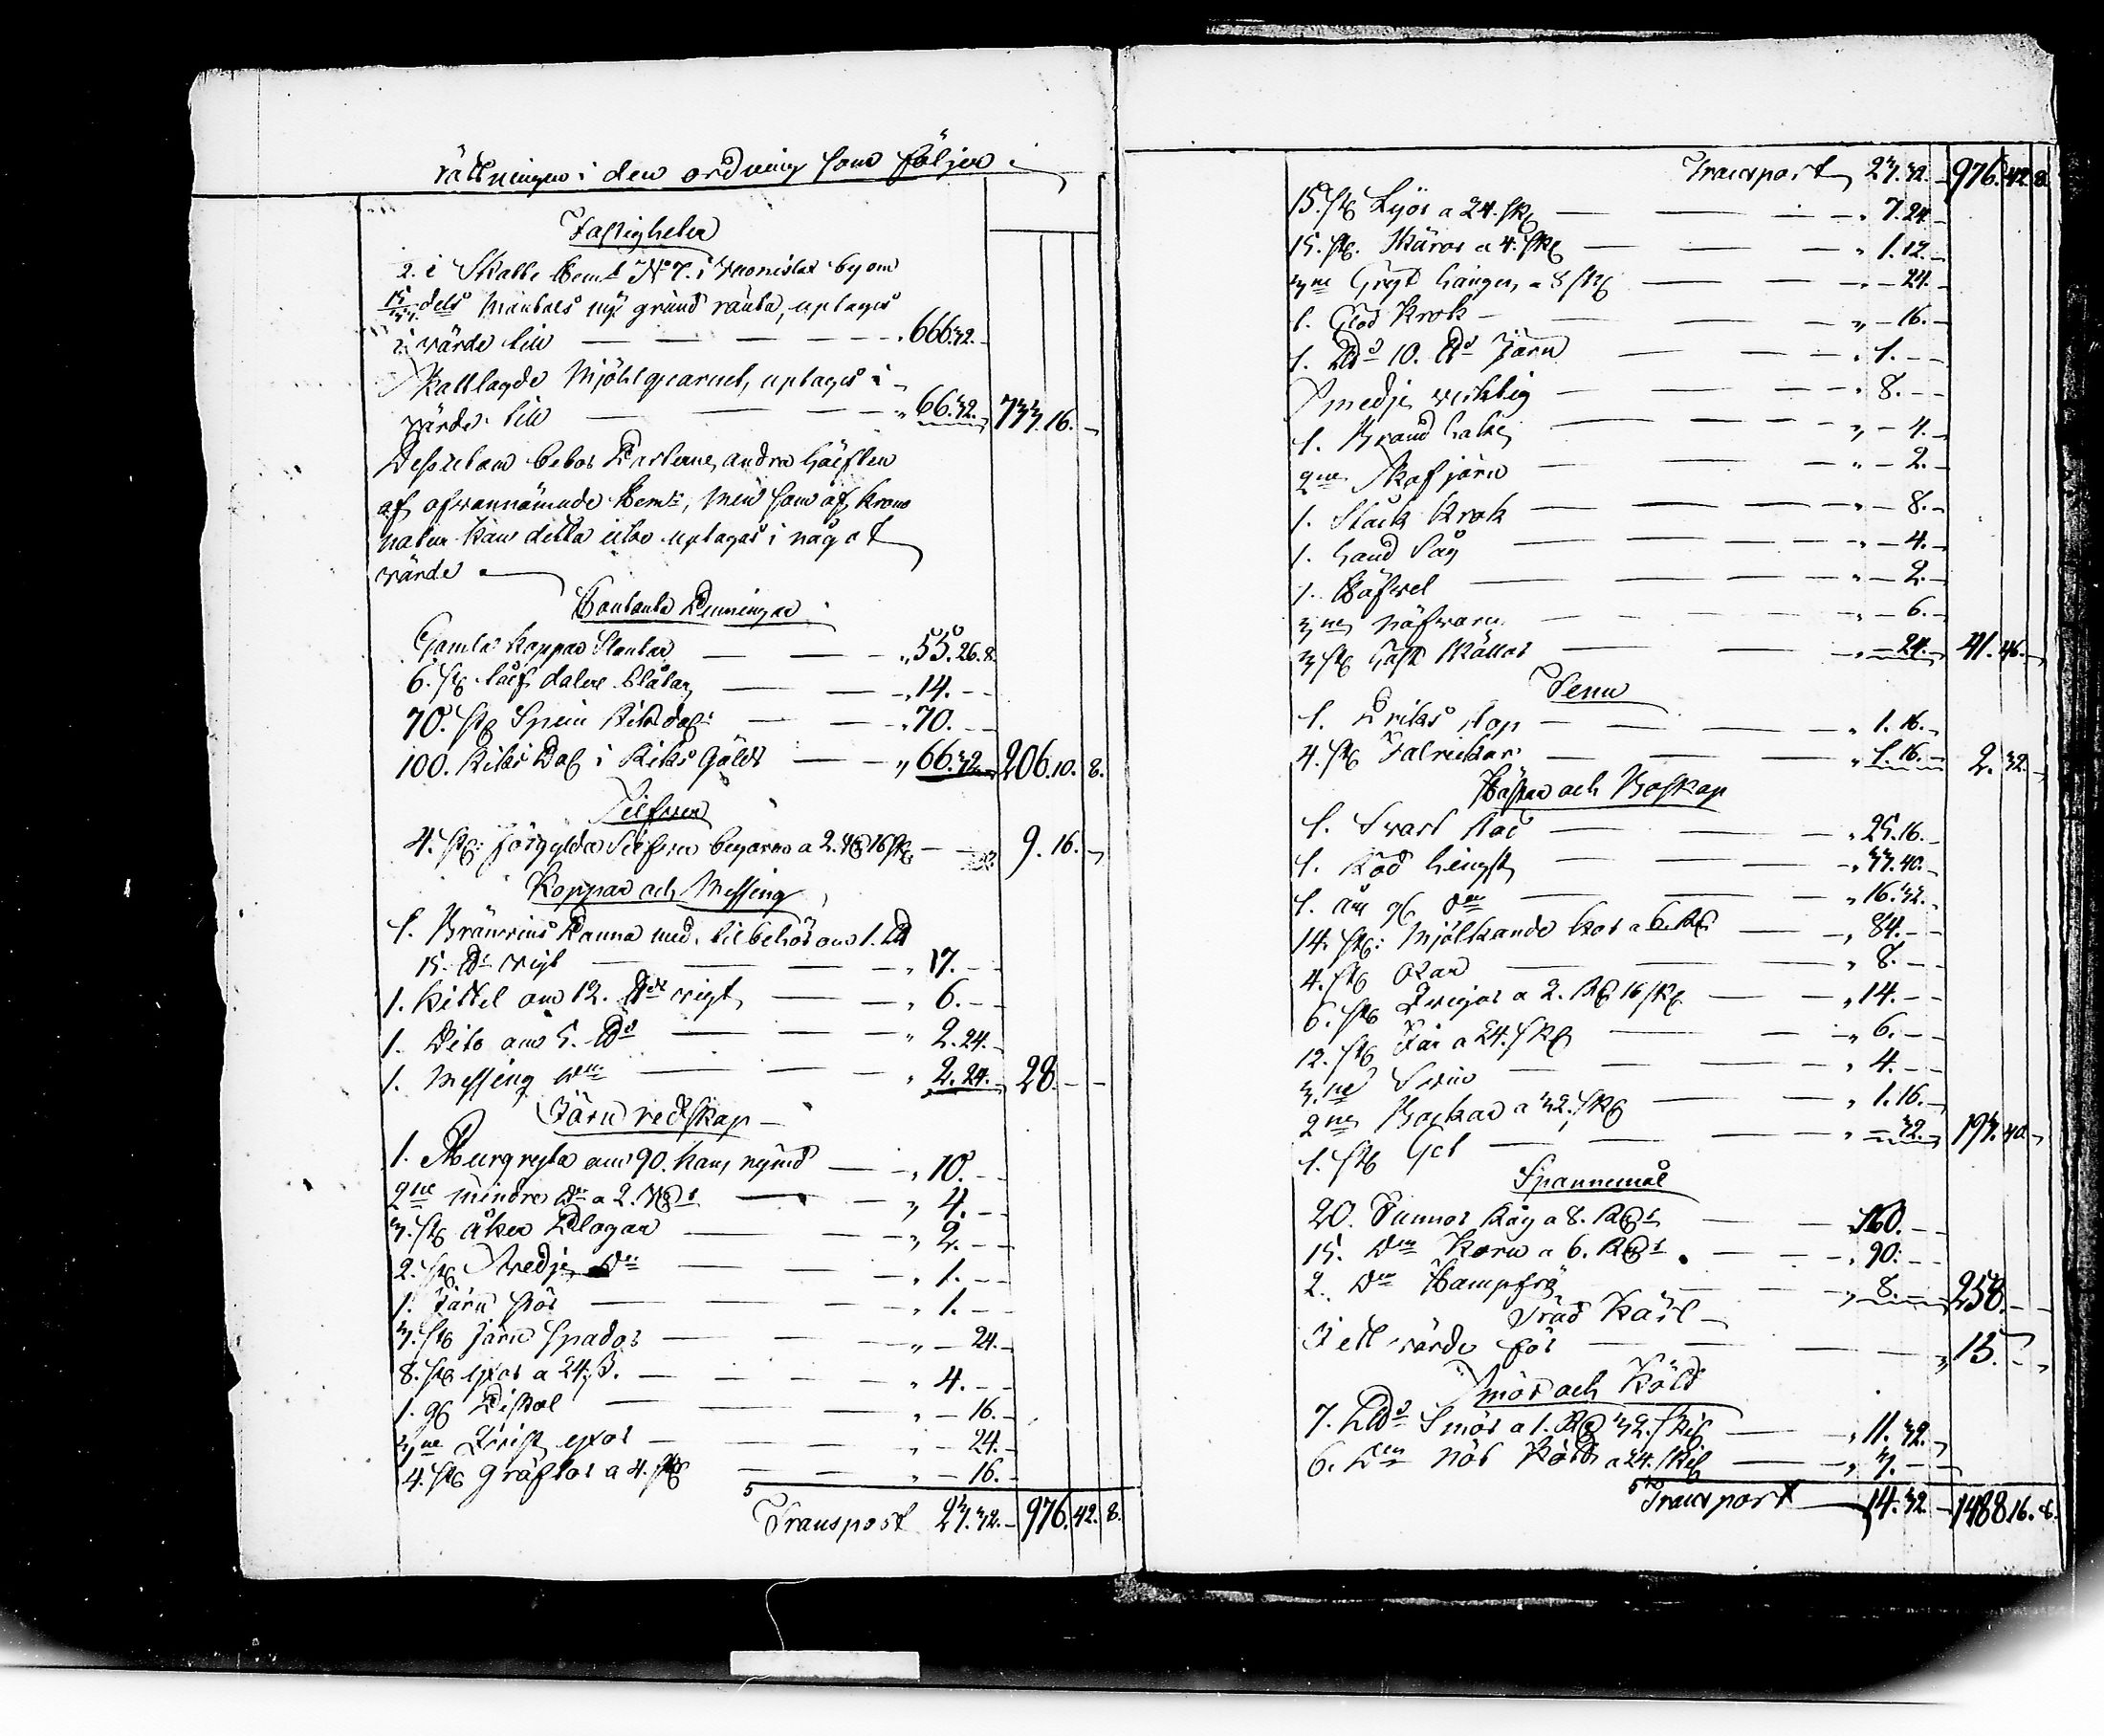 rättningen i den ordning som följer
Fastigheter
2. i Skatte Hemt No 7. i by om
15/ dels Mantals ny grund ränta, uptages
i värde till — — " 666.32.-
Skattlagde Mjöhlqvarnet, uptages i
värde till — — " 66.32.- 733.16.-
Dessutom bebos Parterne andra hälften
af ofvannämnde Hemt, men som af krono
natur kan detta icke uptagas i något
värde
Contante Penningar
Gamla Koppar Slantar — — " 55.26.8.
6. st — " 14.--
70. st Specie Riksdal: — " 70.--
100. Riks Dal i Riks Gälds — " 66.32.- 206.10.8.
Silfver
4. st: förgylda Silfver begarne a 2. Rd 16 sk — 9.16.-
Koppar och Messing
1. Bränvins Panna med tilbehör om 1. Ld
15. Ld: vigt — — " 17.--
1. Kittel om 12. vigt — " 6.--
1. Dito om 5. — " 2.24.-
1. Messing — " 2.24.- 28.--
Järn redskap
1. Murgryta om 90. kans rymd — " 10.--
2ne mindre Do a 2. Rd — " 4.--
3. st åker Plogar — " 2.--
2. st Do — " 1.--
1. Järn stör — " 1.--
3. st järn spador — " - 24.-
8. st yxor a 24 ß. — " 4.--
1. gl — " - 16.-
3ne yxor — " - 24.-
4. st gräftor a 4. sk — " - 16.-
Transport 23.32.- 976.42.8.
Transport 23.32.- 976.42.8
15. st Lyor a 24. sk — " 7.24.-
15. st. Skäror a 4. sk — " 1.12.-
3ne Gryt hänger a 8 sk — " - 24.-
1. Glod Krok — " - 16.-
1. Ld 10. Järn — " 1.--
Smedje — " 8.--
1. Brand hake — " - 4.-
2ne Skafjärn — " - 2.-
1. Stack Krok — " - 8.-
1. hand Såg — " - 4.-
1. Häfvel — " - 2.-
3ne näfvare — " - 6.-
3 st Häst Skällor — " - 24.- 41.46.-
Tenn
1. Dricks stop — " 1.16.-
4. st Talrickar — " 1.16.- 2.32.-
Hästar och Boskap
1. Svart Sto — " 25.16.-
1. Röd hingst — " 33.40.-
1. — " 16.32.-
14. st: Mjölkande kor a 6. Rd — " 84.--
4. st Oxar — " 8.--
6. st Qvigor a 2. Rd 16 sk — " 14.--
12. st Får a 24. sk — " 6.--
3ne Svin — " 4.--
2ne Bockar a 32. sk — " 1.16.-
1. st Get — " - 32.- 193.40.-
Spannemål
20. Tunnor Råg a 8. Rd — 160.--
15. Do Korn a 6. Rd — " 90.--
2. Do Hampfrö — " 8.-- 258.--
Träd Käril
I ett värde för — " 15.--
Smör och Kött
7. Ld Smör a 1. Rd 32. sk — " 11.32.-
6. Do nöt Kött a 24. sk — " 3.--
Transport 14.32.- 1488.16.8.